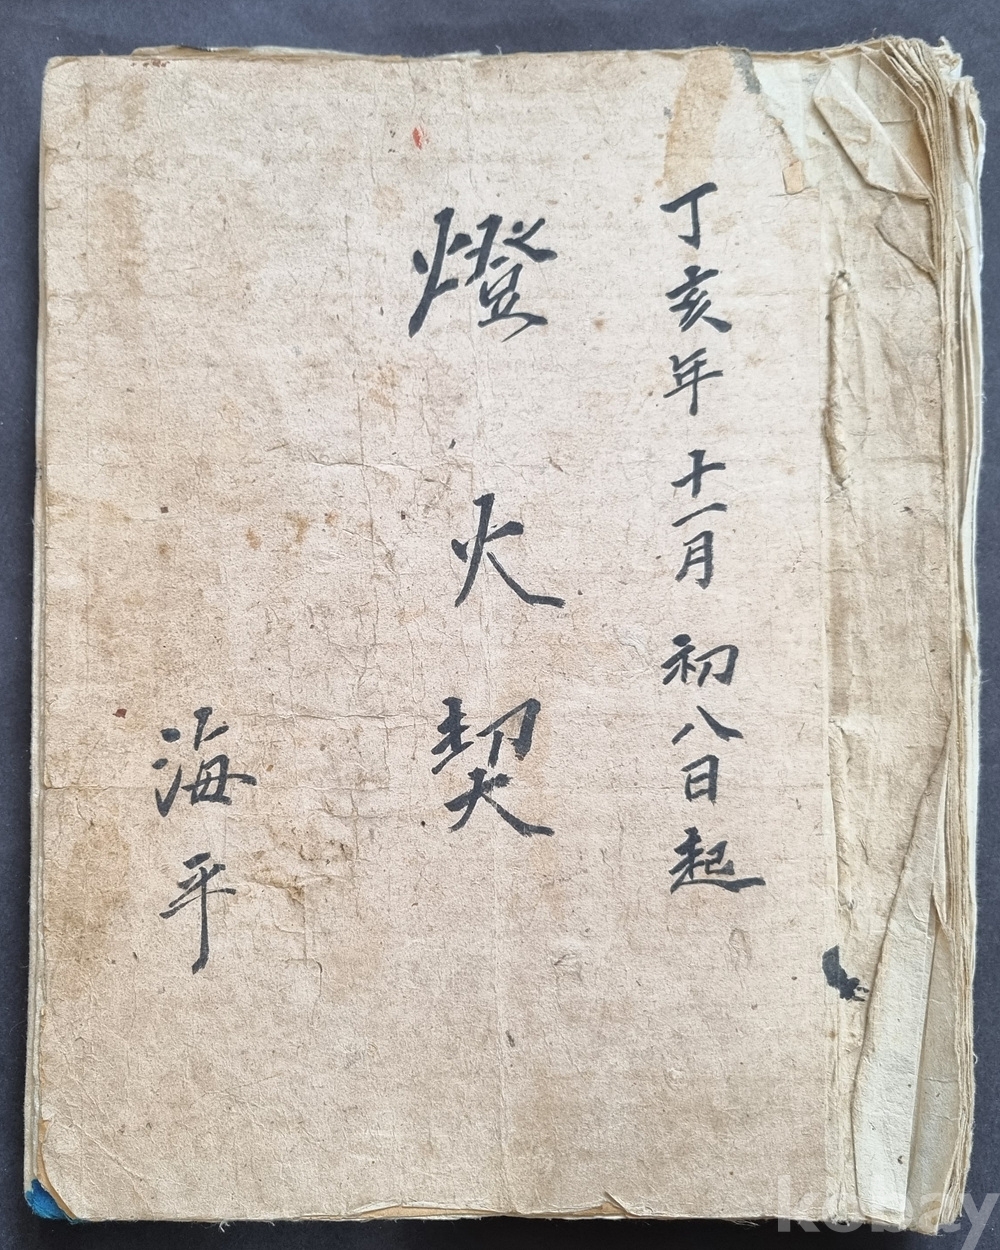 丁亥年 十一月 初八日起
燈火契
海平
kobay